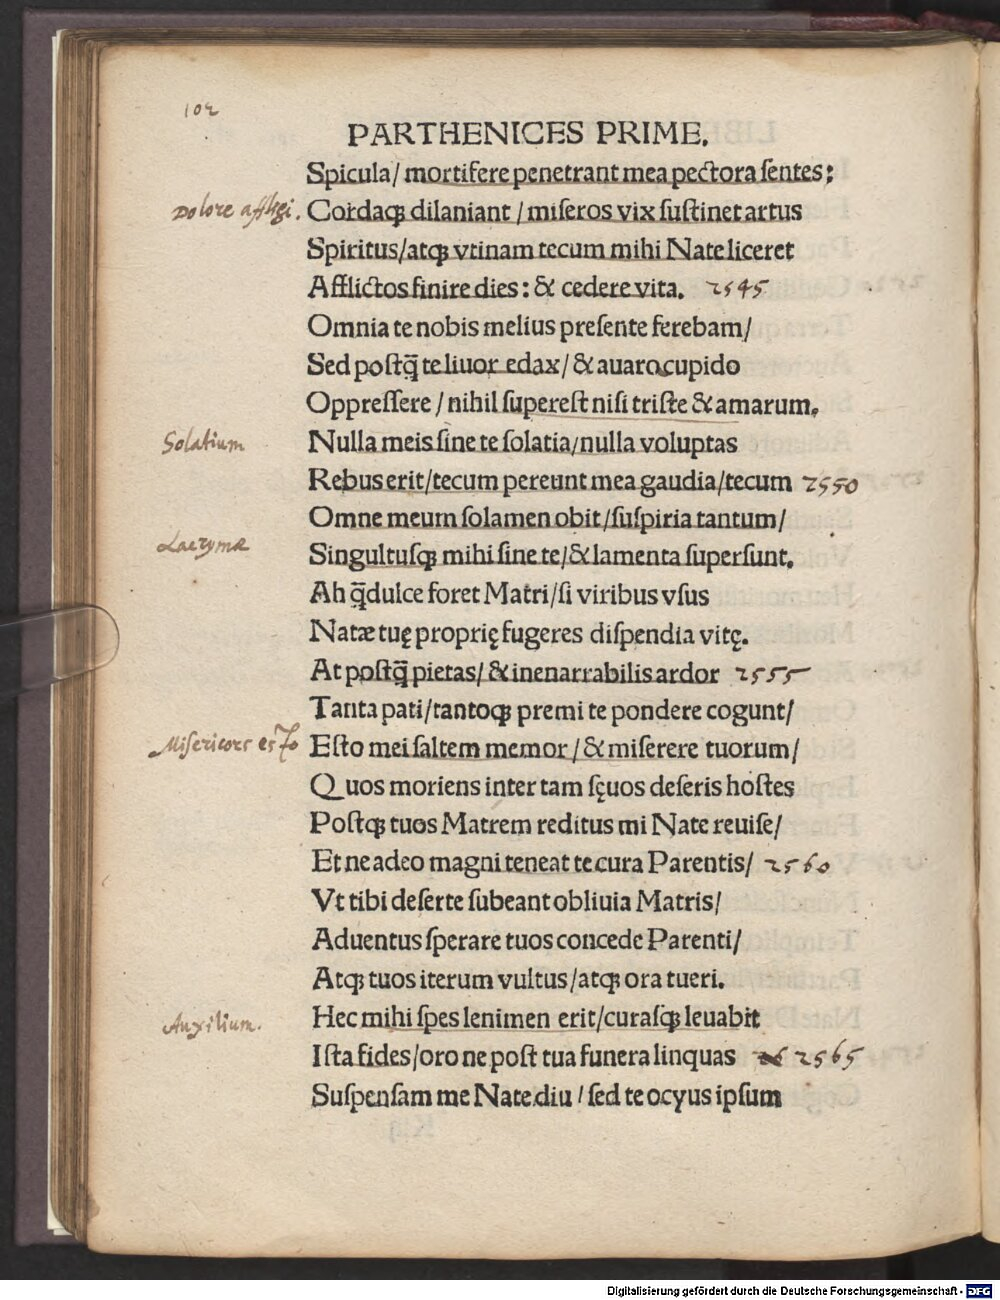 102
PARTHENICES PRIME.
Spicula/ mortifere penetrant mea pectora ſentes:
Dolore affligi. Cordaqꝫ dilaniant / miſeros vix ſuſtinet artus
Spiritus/atqꝫ vtinam tecum mihi Nate liceret
Afflictos finire dies: & cedere vita. 2545
Omnia te nobis melius preſente ferebam/
Sed poſtq̄ te liuor edax/ & auaro cupido
Oppreſſere / nihil ſupereſt niſi triſte & amarum.
Solatium Nulla meis ſine te ſolatia/nulla voluptas
Rebus erit/tecum pereunt mea gaudia/tecum 2550
Omne meum ſolamen obit/ſuſpiria tantum/
Lacrymæ Singultuſqꝫ mihi ſine te/& lamenta ſuperſunt.
Ah q̄dulce foret Matri/ſi viribus vſus
Natæ tuę proprię fugeres diſpendia vitę.
At poſtq̄ pietas/ & inenarrabilis ardor 2555
Tanta pati/tantoqꝫ premi te pondere cogunt/
Miſericors eſto Eſto mei ſaltem memor/& miſerere tuorum/
Quos moriens inter tam ſęuos deſeris hoſtes
Poſtqꝫ tuos Matrem reditus mi Nate reuiſe/
Et ne adeo magni teneat te cura Parentis/ 2560
Vt tibi deſerte ſubeant obliuia Matris/
Aduentus ſperare tuos concede Parenti/
Atqꝫ tuos iterum vultus/atqꝫ ora tueri.
Auxilium. Hec mihi ſpes lenimen erit/curaſqꝫ leuabit
Iſta fides/oro ne poſt tua funera linquas 2565
Suſpenſam me Nate diu / ſed te ocyus ipſum
Digitalisierung gefördert durch die Deutsche Forschungsgemeinschaft - DFG